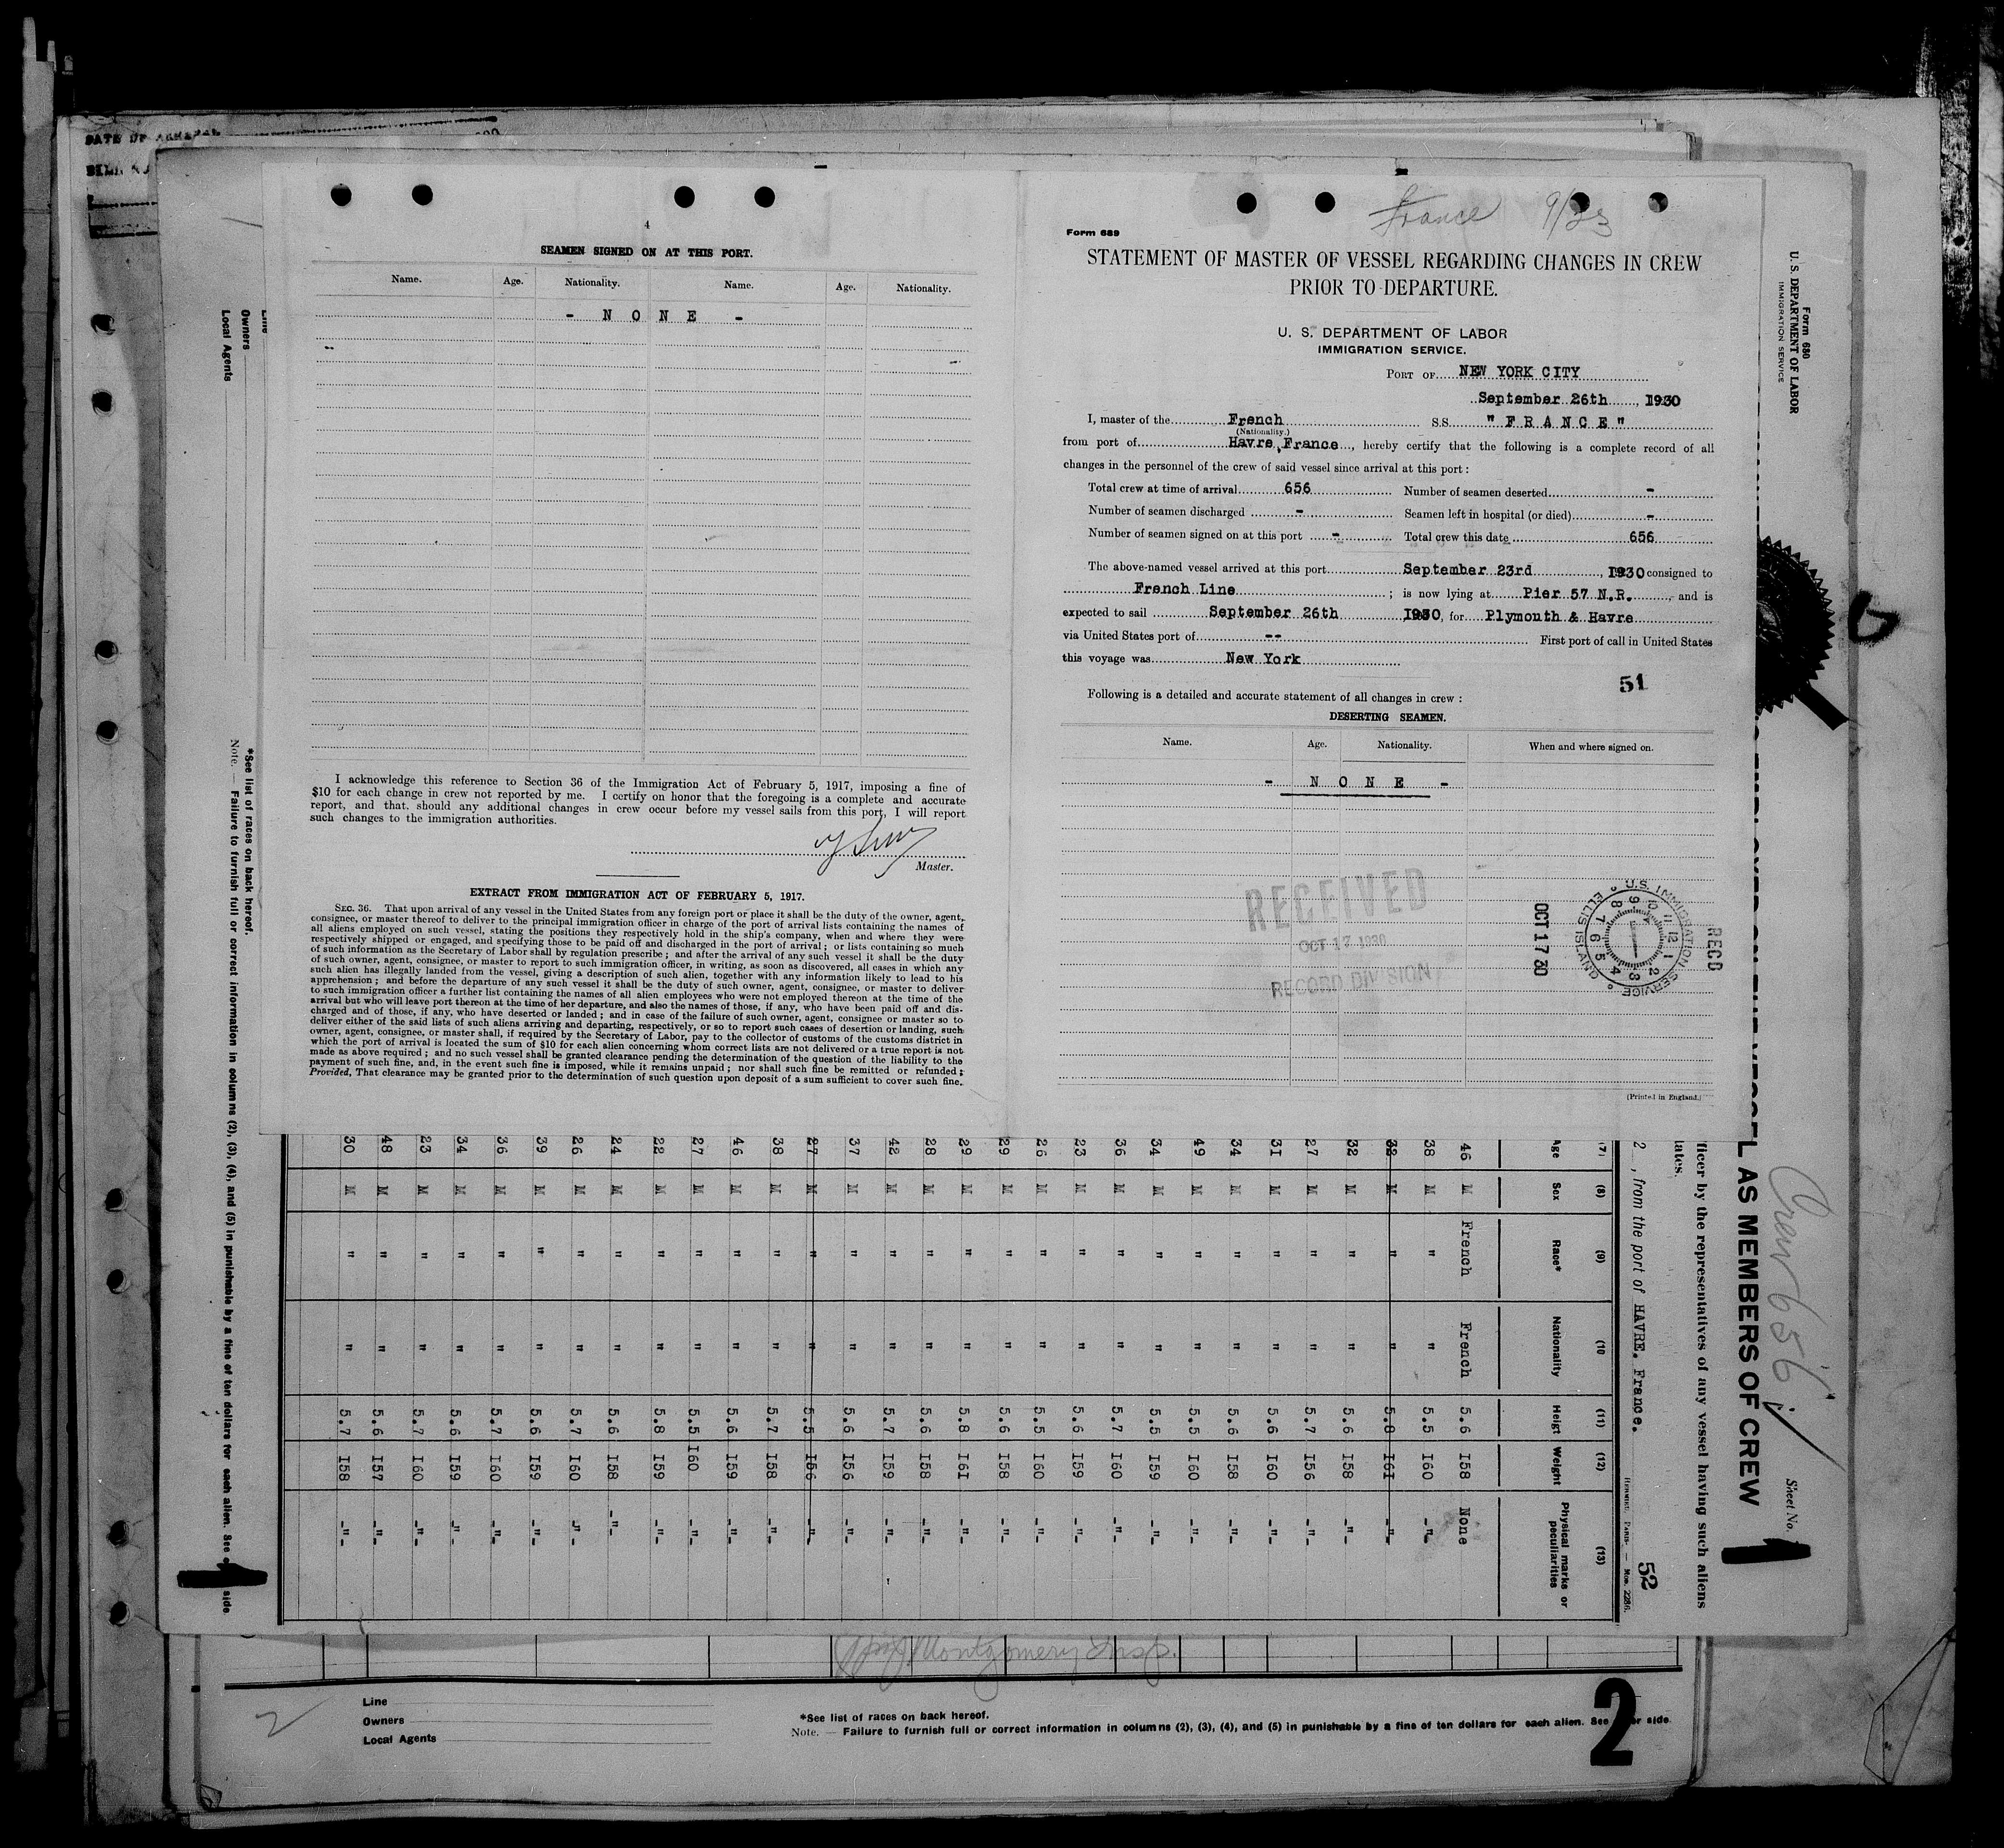 DATE OF ARRIVAL
4
SEAMEN SIGNED ON AT THIS PORT.
Name. Age. Nationality. Name. Age. Nationality.
- N O N E -
I acknowledge this reference to Section 36 of the Immigration Act of February 5, 1917, imposing a fine of
$10 for each change in crew not reported by me. I certify on honor that the foregoing is a complete and accurate
report, and that should any additional changes in crew occur before my vessel sails from this port, I will report
such changes to the immigration authorities.
Master.
EXTRACT FROM IMMIGRATION ACT OF FEBRUARY 5, 1917.
SEC. 36. That upon arrival of any vessel in the United States from any foreign port or place it shall be the duty of the owner, agent,
consignee, or master thereof to deliver to the principal immigration officer in charge of the port of arrival lists containing the names of
all aliens employed on such vessel, stating the positions they respectively hold in the ship's company, when and where they were
respectively shipped or engaged, and specifying those to be paid off and discharged in the port of arrival; or lists containing so much
of such information as the Secretary of Labor shall by regulation prescribe; and after the arrival of any such vessel it shall be the duty
of such owner, agent, consignee, or master to report to such immigration officer, in writing, as soon as discovered, all cases in which any
such alien has illegally landed from the vessel, giving a description of such alien, together with any information likely to lead to his
apprehension; and before the departure of any such vessel it shall be the duty of such owner, agent, consignee, or master to deliver
to such immigration officer a further list containing the names of all alien employees who were not employed thereon at the time of the
arrival but who will leave port thereon at the time of her departure, and also the names of those, if any, who have been paid off and dis-
charged and of those, if any, who have deserted or landed; and in case of the failure of such owner, agent, consignee or master so to
deliver either of the said lists of such aliens arriving and departing, respectively, or so to report such cases of desertion or landing, such
owner, agent, consignee, or master shall, if required by the Secretary of Labor, pay to the collector of customs of the customs district in
which the port of arrival is located the sum of $10 for each alien concerning whom correct lists are not delivered or a true report is not
made as above required; and no such vessel shall be granted clearance pending the determination of the question of the liability to the
payment of such fine, and, in the event such fine is imposed, while it remains unpaid; nor shall such fine be remitted or refunded:
Provided, That clearance may be granted prior to the determination of such question upon deposit of a sum sufficient to cover such fine.
France 9/23
Form 689
STATEMENT OF MASTER OF VESSEL REGARDING CHANGES IN CREW
PRIOR TO DEPARTURE.
U. S. DEPARTMENT OF LABOR
IMMIGRATION SERVICE.
PORT OF NEW YORK CITY
September 26th, 1930
I, master of the French S.S. "FRANCE"
(Nationality.)
from port of Havre, France, hereby certify that the following is a complete record of all
changes in the personnel of the crew of said vessel since arrival at this port:
Total crew at time of arrival 656 Number of seamen deserted -
Number of seamen discharged - Seamen left in hospital (or died) -
Number of seamen signed on at this port - Total crew this date 656
The above-named vessel arrived at this port September 23rd, 1930 consigned to
French Line; is now lying at Pier 57 N.R., and is
expected to sail September 26th 1930, for Plymouth & Havre
via United States port of -- First port of call in United States
this voyage was New York
51
Following is a detailed and accurate statement of all changes in crew:
DESERTING SEAMEN.
Name. Age. Nationality. When and where signed on.
- N O N E -
RECEIVED
OCT 17 1930
RECORD DIVISION
OCT 17 30
U.S. IMMIGRATION SERVICE
ELLIS ISLAND
RECD
(Printed in England.)
Form 680
U. S. DEPARTMENT OF LABOR
IMMIGRATION SERVICE
Crew 656
Sheet No. 1
AS MEMBERS OF CREW
by the representatives of any vessel having such aliens
2, from the port of HAVRE. France.
52
(7) (8) (9) (10 (11) (12) (13)
Age Sex Race* Nationality Heigt Weight Physical marks or peculiarities
46 M French French 5.6 I58 None
38 M " " 5.5 I60 -"-
32 M " " 5.8 I6I -"-
32 M " " 5.6 I58 -"-
27 M " " 5.7 I56 -"-
3I M " " 5.6 I60 -"-
34 M " " 5.6 I58 -"-
49 M " " 5.5 I60 -"-
34 M " " 5.5 I59 -"-
36 M " " 5.7 I60 -"-
23 M " " 5.6 I59 -"-
26 M " " 5.5 I60 -"-
29 M " " 5.6 I58 -"-
29 M " " 5.8 I6I -"-
28 M " " 5.6 I58 -"-
42 M " " 5.7 I59 -"-
37 M " " 5.6 I56 -"-
27 M " " 5.5 I56 -"-
38 M " " 5.7 I58 -"-
46 M " " 5.6 I59 -"-
27 M " " 5.5 I60 -"-
22 M " " 5.8 I59 -"-
24 M " " 5.6 I58 -"-
26 M " " 5.7 I60 -"-
39 M " " 5.6 I59 -"-
36 M " " 5.7 I60 -"-
34 M " " 5.6 I59 -"-
23 M " " 5.7 I60 -"-
48 M " " 5.6 I57 -"-
30 M " " 5.7 I58 -"-
Line
Owners
Local Agents
*See list of races on back hereof.
Note. — Failure to furnish full or correct information in columns (2), (3), (4), and (5) in punishable by a fine of ten dollars for each alien. See side
1
Montgomery Insp.
2
Line
Owners
Local Agents
*See list of races on back hereof.
Note. — Failure to furnish full or correct information in columns (2), (3), (4), and (5) in punishable by a fine of ten dollars for each alien. See side.
2